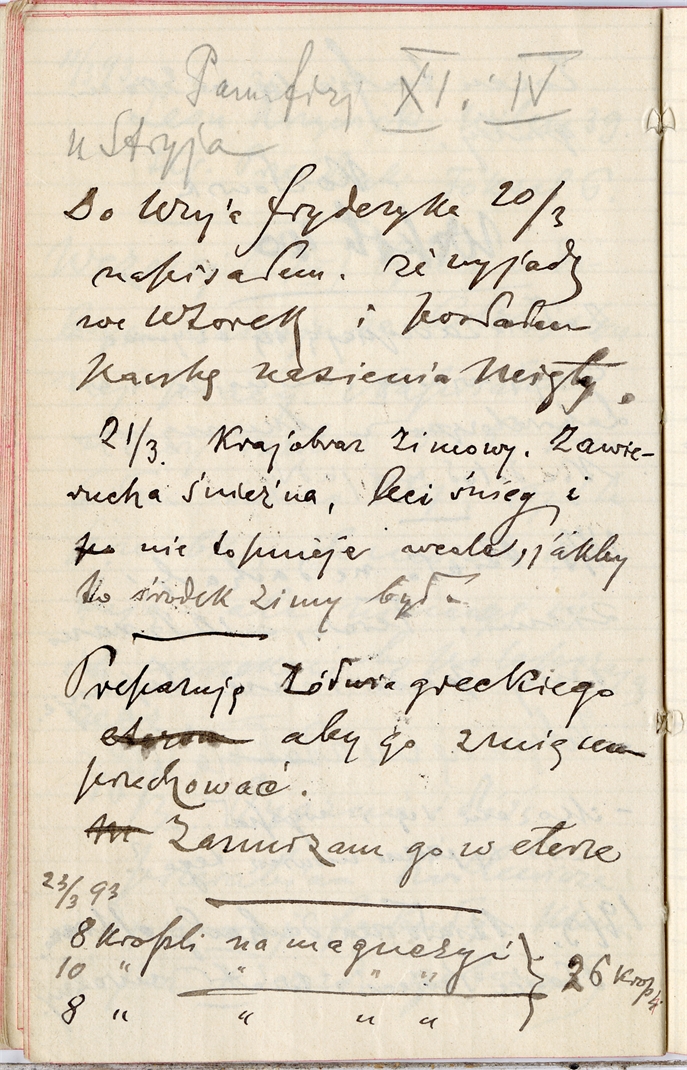 Pamfizj XI. IV
u Stryja
Do Wuja Fryderyka 20/3
napisałem. że wyjadę
we Wtorek i posłałem
paczkę nasienia
21/3. Krajobraz zimowy. Zawie-
rucha śnieżna, leci śnieg i
po nie topnieje wcale, jakby
to środek zimy był.
Preparuję żółwia greckiego
eterem aby go
przechować.
Zamrażam go w eterze
23/3 93
8 kropli na magnezyi
10 " " " "
8 " " " "
26 kropli